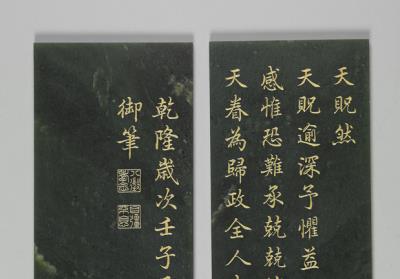 天貺然
天貺逾深予懼益
感惟恐難承兢兢
天眷為歸政全人
乾隆歲次壬子
御筆
八徵耄念
自彊不息